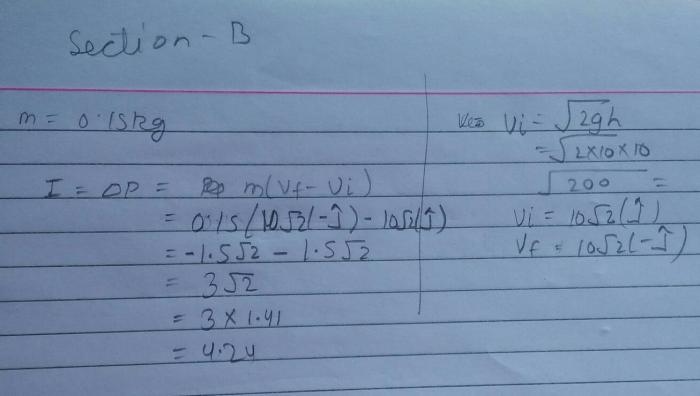 Section - B
m = 0.15kg
I = ΔP = m(Vf - Vi)
= 0.15(10√2(-ĵ) - 10√2(ĵ)
= -1.5√2 - 1.5√2
= 3√2
= 3 × 1.41
= 4.24
Vi = √2gh
= √2×10×10
√200 =
Vi = 10√2(ĵ)
Vf = 10√2(-ĵ)